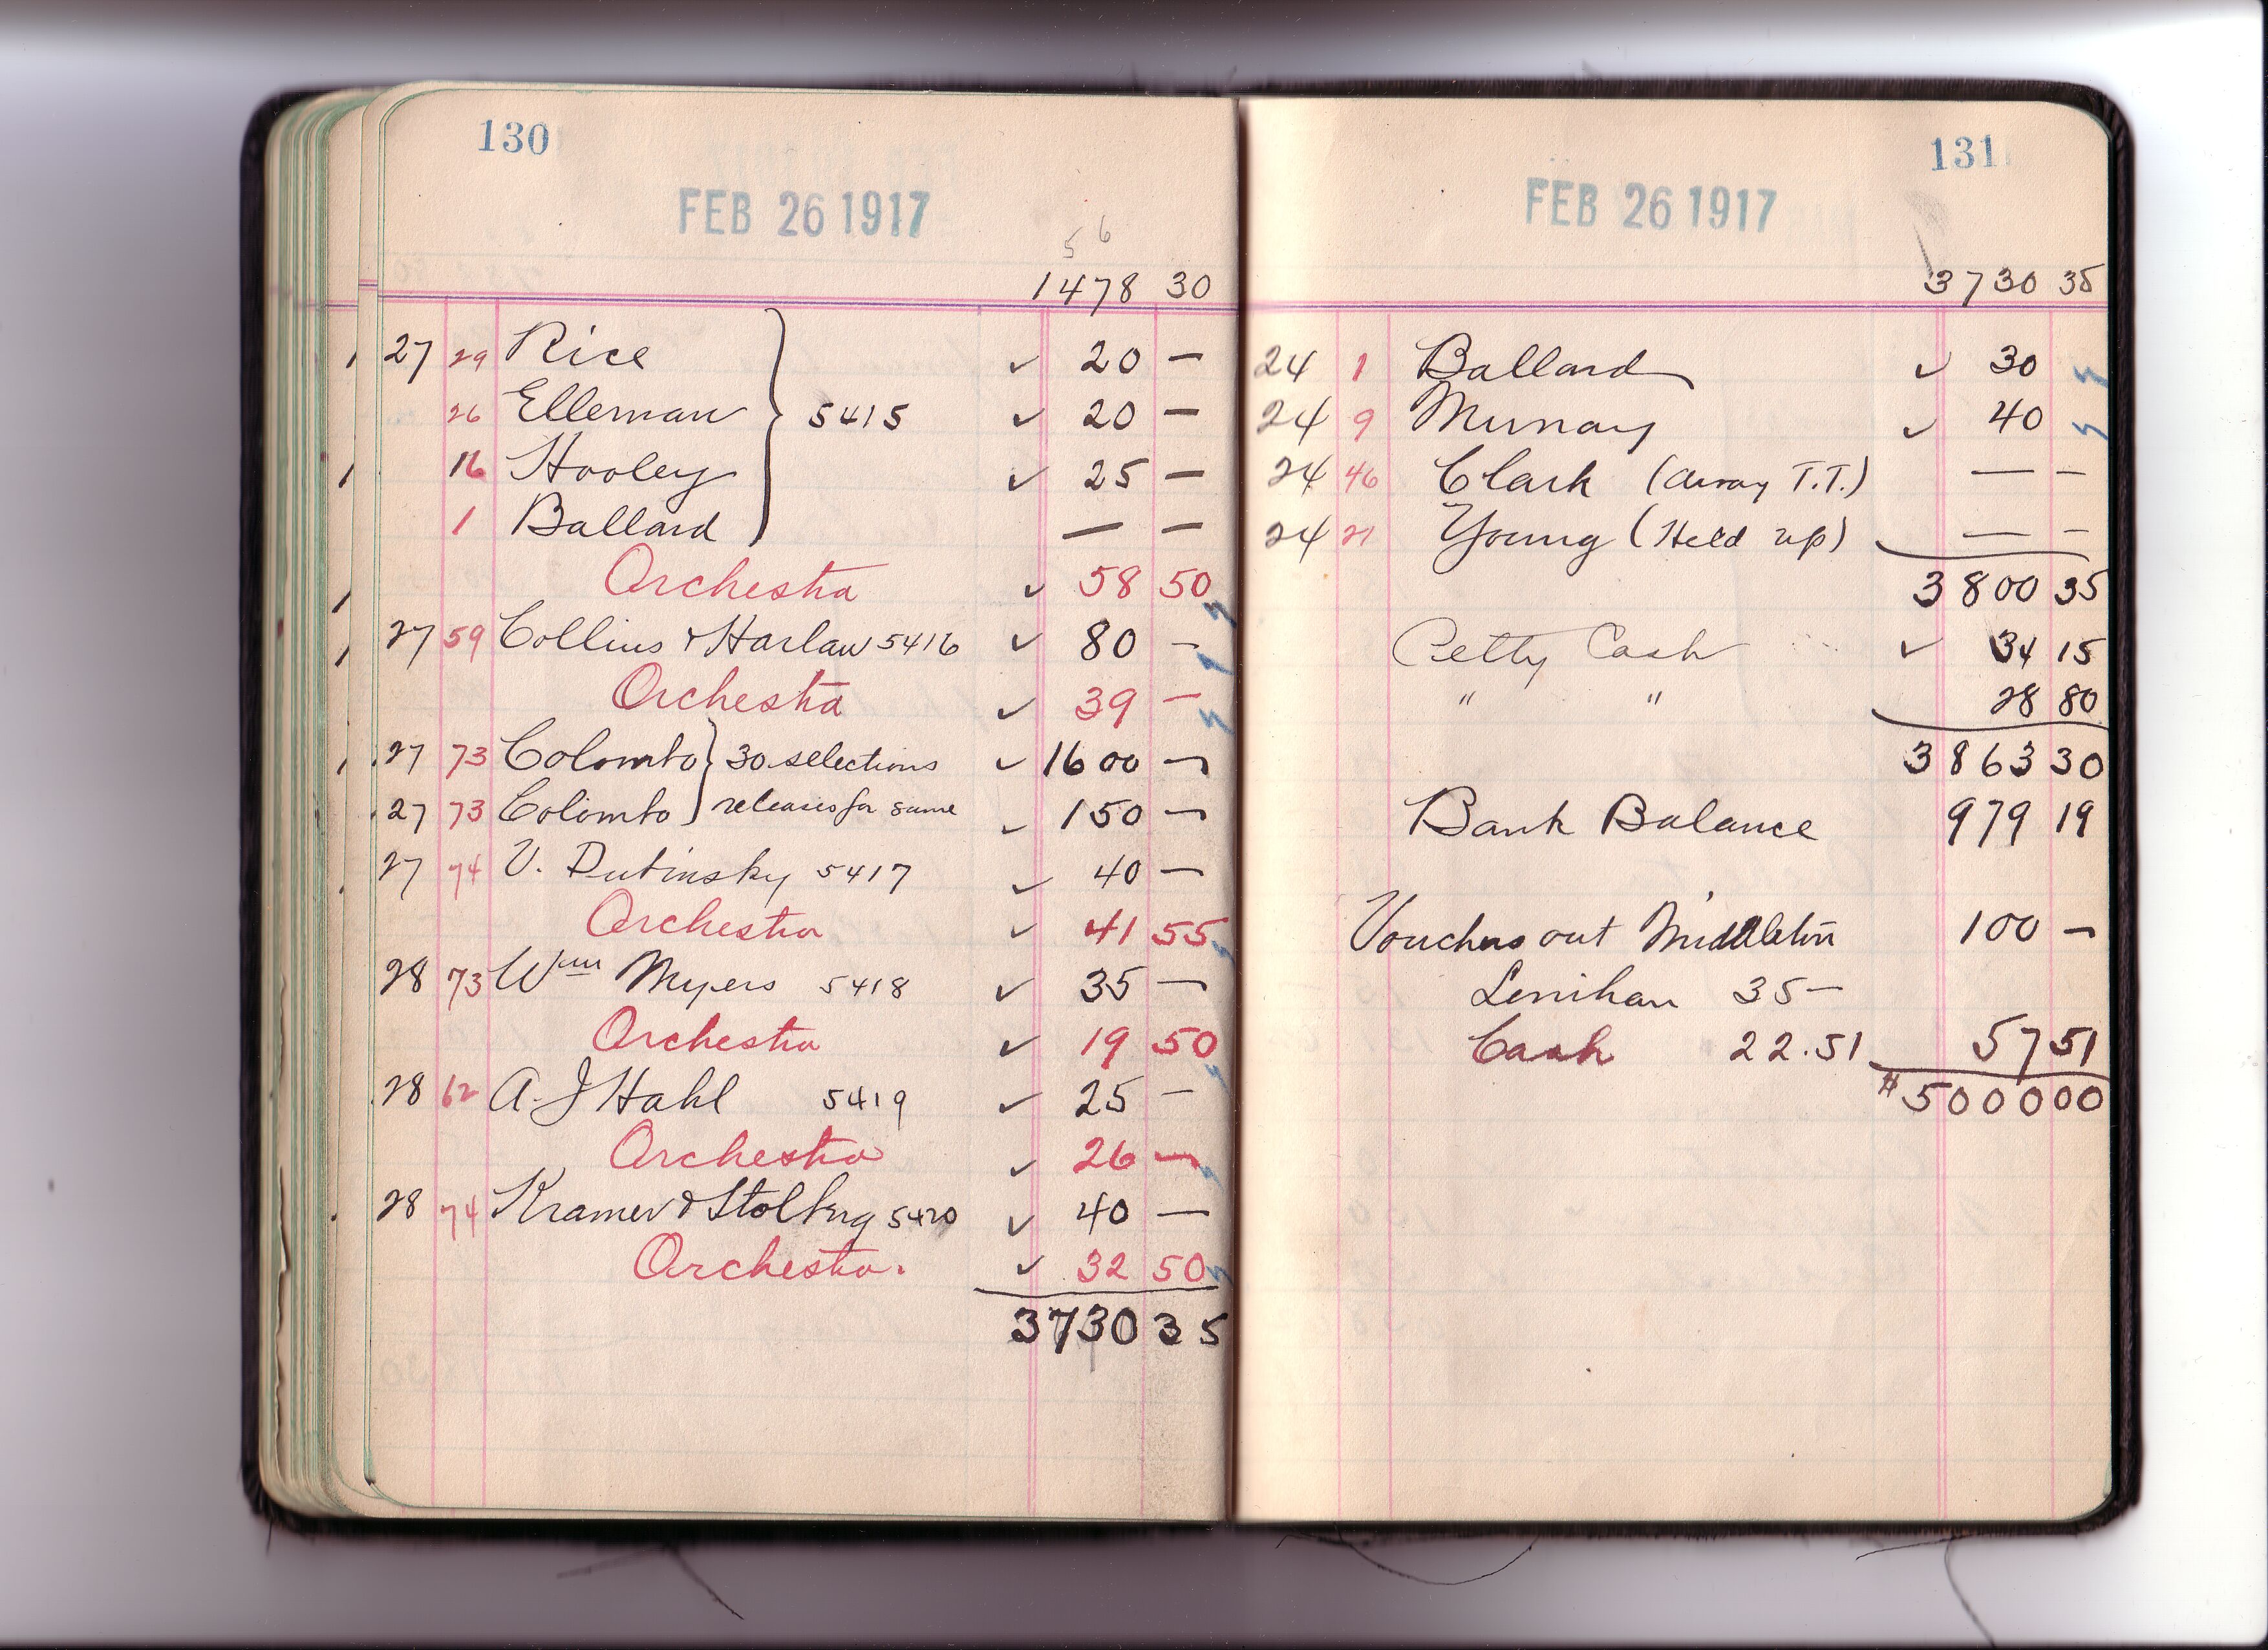 130
FEB 26 1917
5 6
1478 30
27 29 Rice ✓ 20 —
26 Elleman 5415 ✓ 20 —
16 Hooley ✓ 25 —
1 Ballard — —
Orchestra ✓ 58 50
27 59 Collins & Harlan 5416 ✓ 80 —
Orchestra ✓ 39 —
27 73 Colombo 30 selections ✓ 1600 —
27 73 Colombo releases for same ✓ 150 —
27 74 V. Dubinsky 5417 ✓ 40 —
Orchestra ✓ 41 55
28 73 Wm Myers 5418 ✓ 35 —
Orchestra ✓ 19 50
28 62 A. J Hahl 5419 ✓ 25 —
Orchestra ✓ 26 —
28 74 Kramer & Stolberg 5420 ✓ 40 —
Orchestra. ✓ 32 50
3730 35
131
FEB 26 1917
3730 35
24 1 Ballard ✓ 30
24 9 Murray ✓ 40
24 46 Clark (away T.T.) — —
24 21 Young (Held up) — —
3800 35
Petty Cash ✓ 34 15
" " 28 80
3863 30
Bank Balance 979 19
Vouchers out Middleton 100 —
Lenihan 35 —
Cash 22.51 57 51
$5000 00